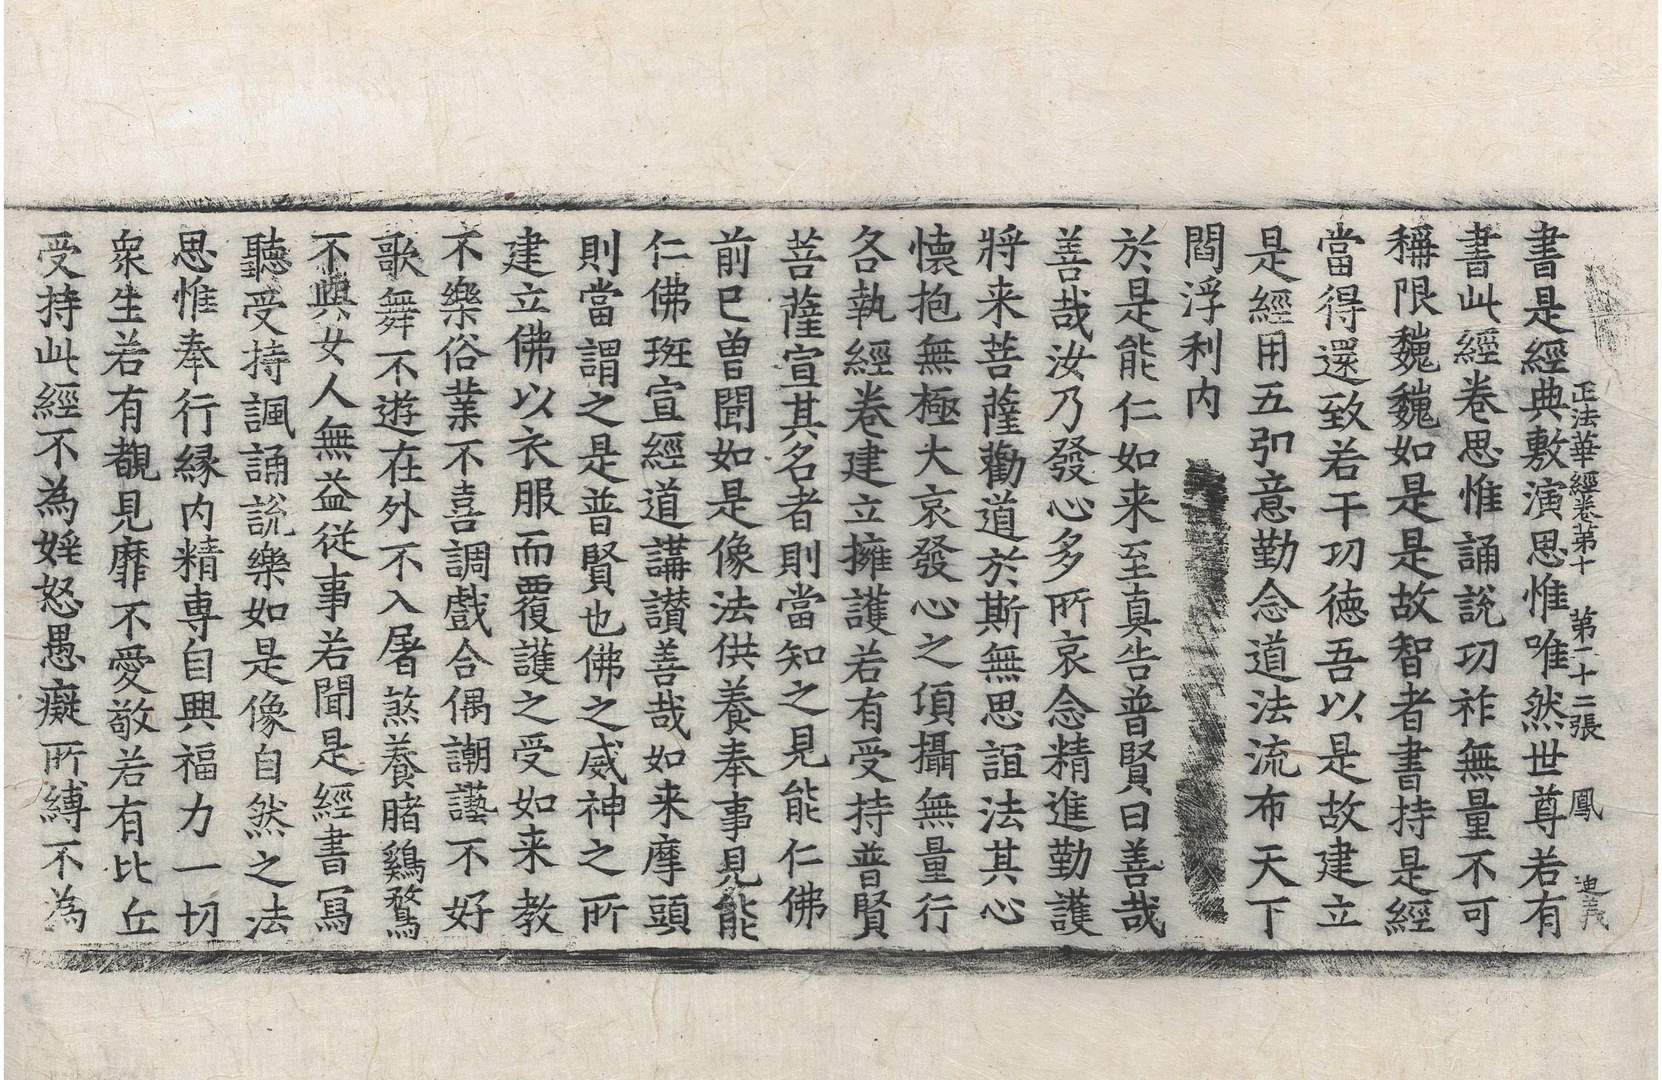 正法華經卷第十　第二十二張　鳳　迪義
書是經典敷演思惟唯然世尊若有
書此經卷思惟誦說功祚無量不可
稱限巍巍如是是故智者書持是經
當得還致若干功德吾以是故建立
是經用五叩意勤念道法流布天下
閻浮利內
於是能仁如来至真告普賢曰善哉
善哉汝乃發心多所哀念精進勤護
將来菩薩勸道於斯無思誼法其心
懐抱無極大哀發心之頃攝無量行
各執經卷建立擁護若有受持普賢
菩薩宣其名者則當知之見能仁佛
前已曽聞如是像法供養奉事見能
仁佛班宣經道講讃善哉如来摩頭
則當謂之是普賢也佛之威神之所
建立佛以衣服而覆護之受如来教
不樂俗業不喜調戲合偶譋讇不好
歌舞不遊在外不入屠煞養睹鷄鶩
不與女人無益従事若聞是經書冩
聽受持諷誦說樂如是像自然之法
思惟奉行縁内精専自興福力一切
衆生若有覩見靡不愛敬若有比丘
受持此經不為婬怒愚癡所縛不為